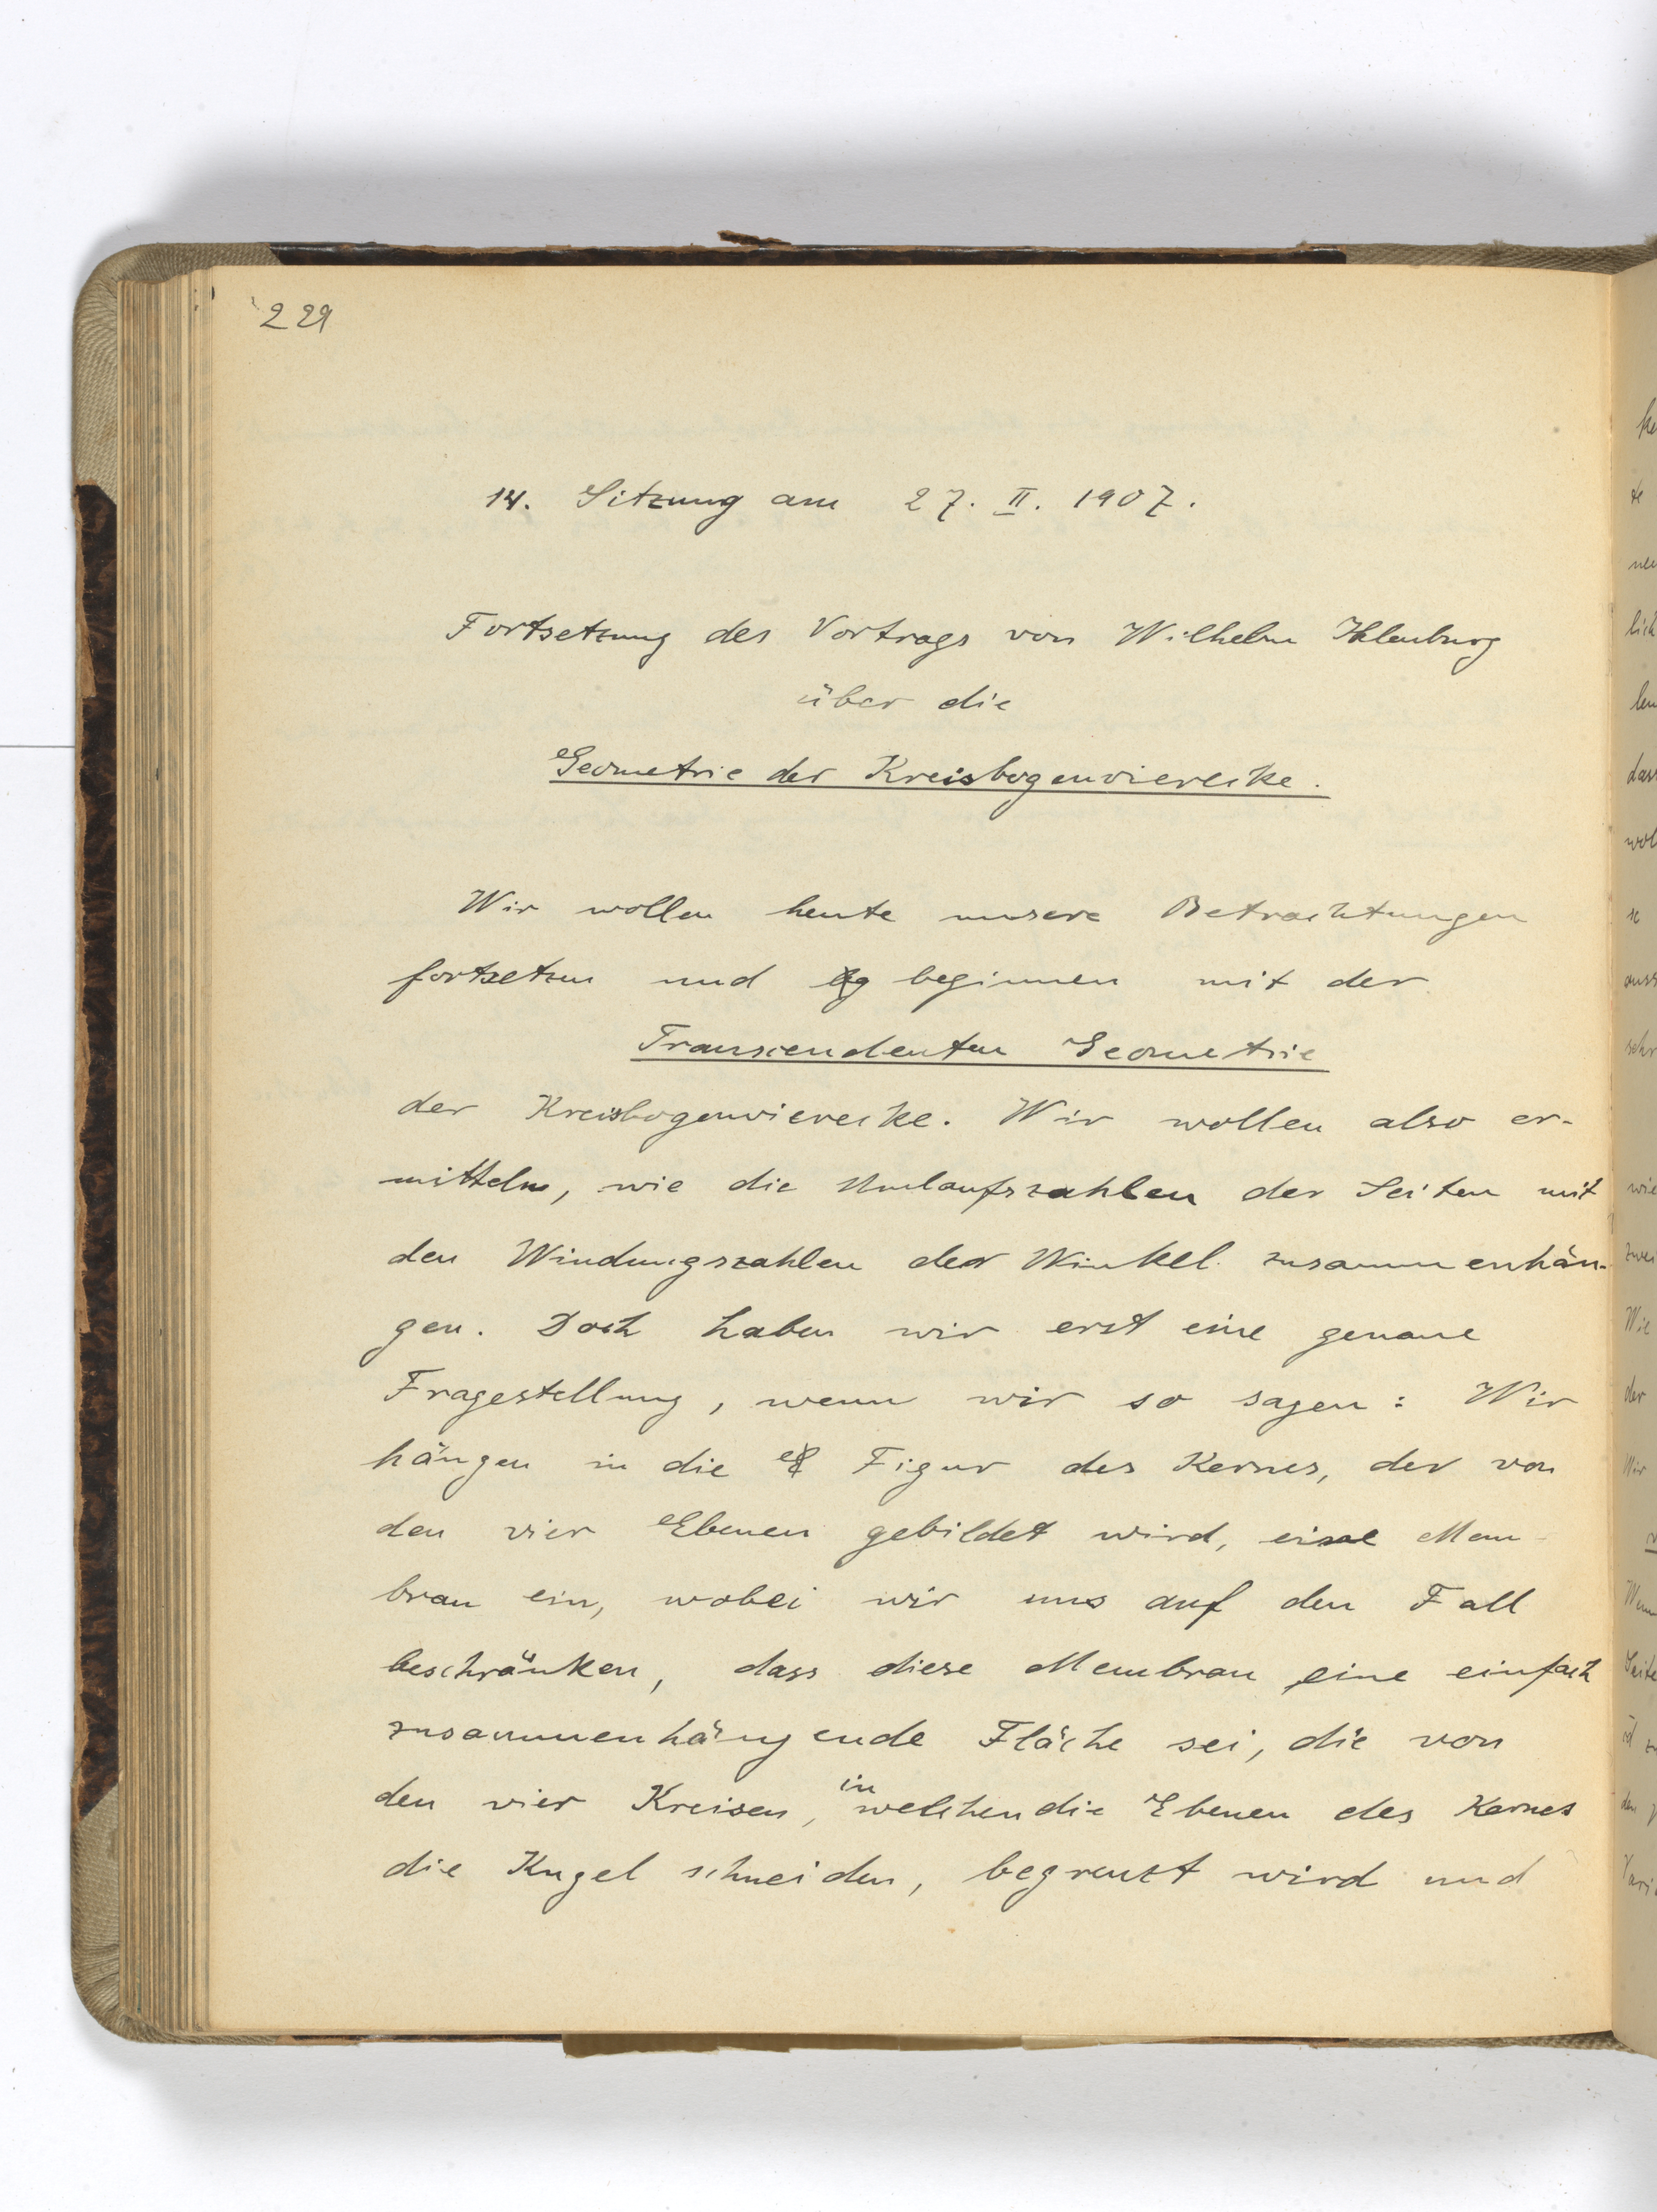 229
14. Sitzung am 27. II. 1907.
Fortsetzung des Vortrags von Wilhelm Ihlenburg
über die
Geometrie der Kreisbogenvierecke.
Wir wollen heute unsere Betrachtungen
fortsetzen und beginnen mit der
Transcendenten Geometrie
der Kreisbogenvierecke. Wir wollen also er-
mitteln, wie die Umlaufszahlen der Seiten mit
den Windungszahlen der Winkel zusammenhän-
gen. Doch haben wir erst eine genaue
Fragestellung, wenn wir so sagen: Wir
hängen in die Figur des Kernes, der von
den vier Ebenen gebildet wird, eine Mem-
bran ein, wobei wir uns auf den Fall
beschränken, dass diese Membran eine einfach
zusammenhängende Fläche sei, die von
den vier Kreisen, in welchen die Ebenen des Kernes
die Kugel schneiden, begrenzt wird und